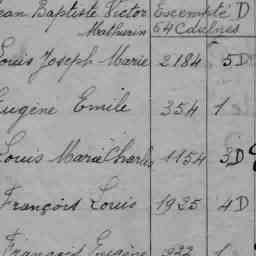 Jean Baptiste Victor Escempté D
Mathurin 64 Cdulnes
Louis Joseph Marie 2184 5D
Eugène Emile 354 1
Louis Marie Charles 1154 3D
François Louis 1935 4D
François Eugène 922 1